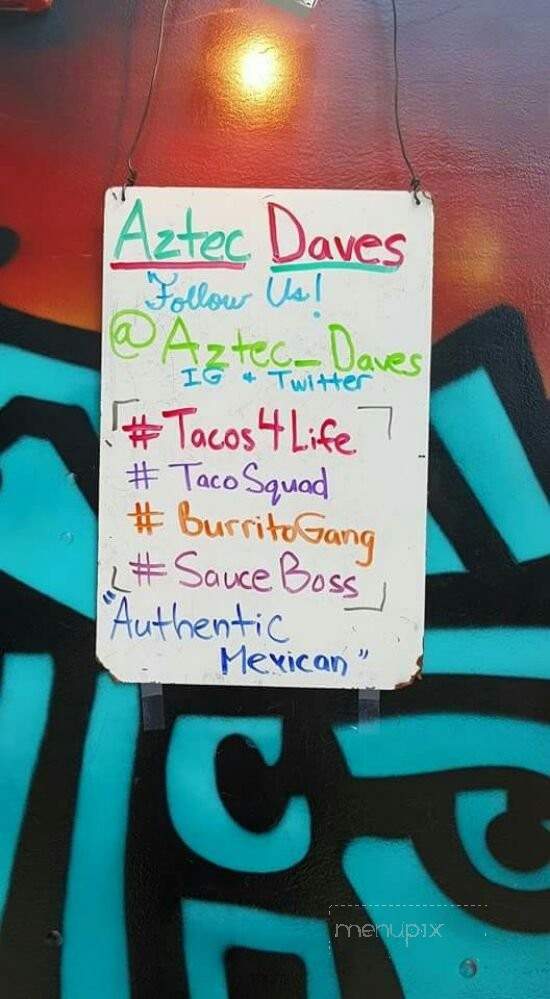 Aztec Daves
Follow Us!
@Aztec_Daves
IG + Twitter
#Tacos4Life
# TacoSquad
# BurritoGang
# Sauce Boss
"Authentic
Mexican"
menupix